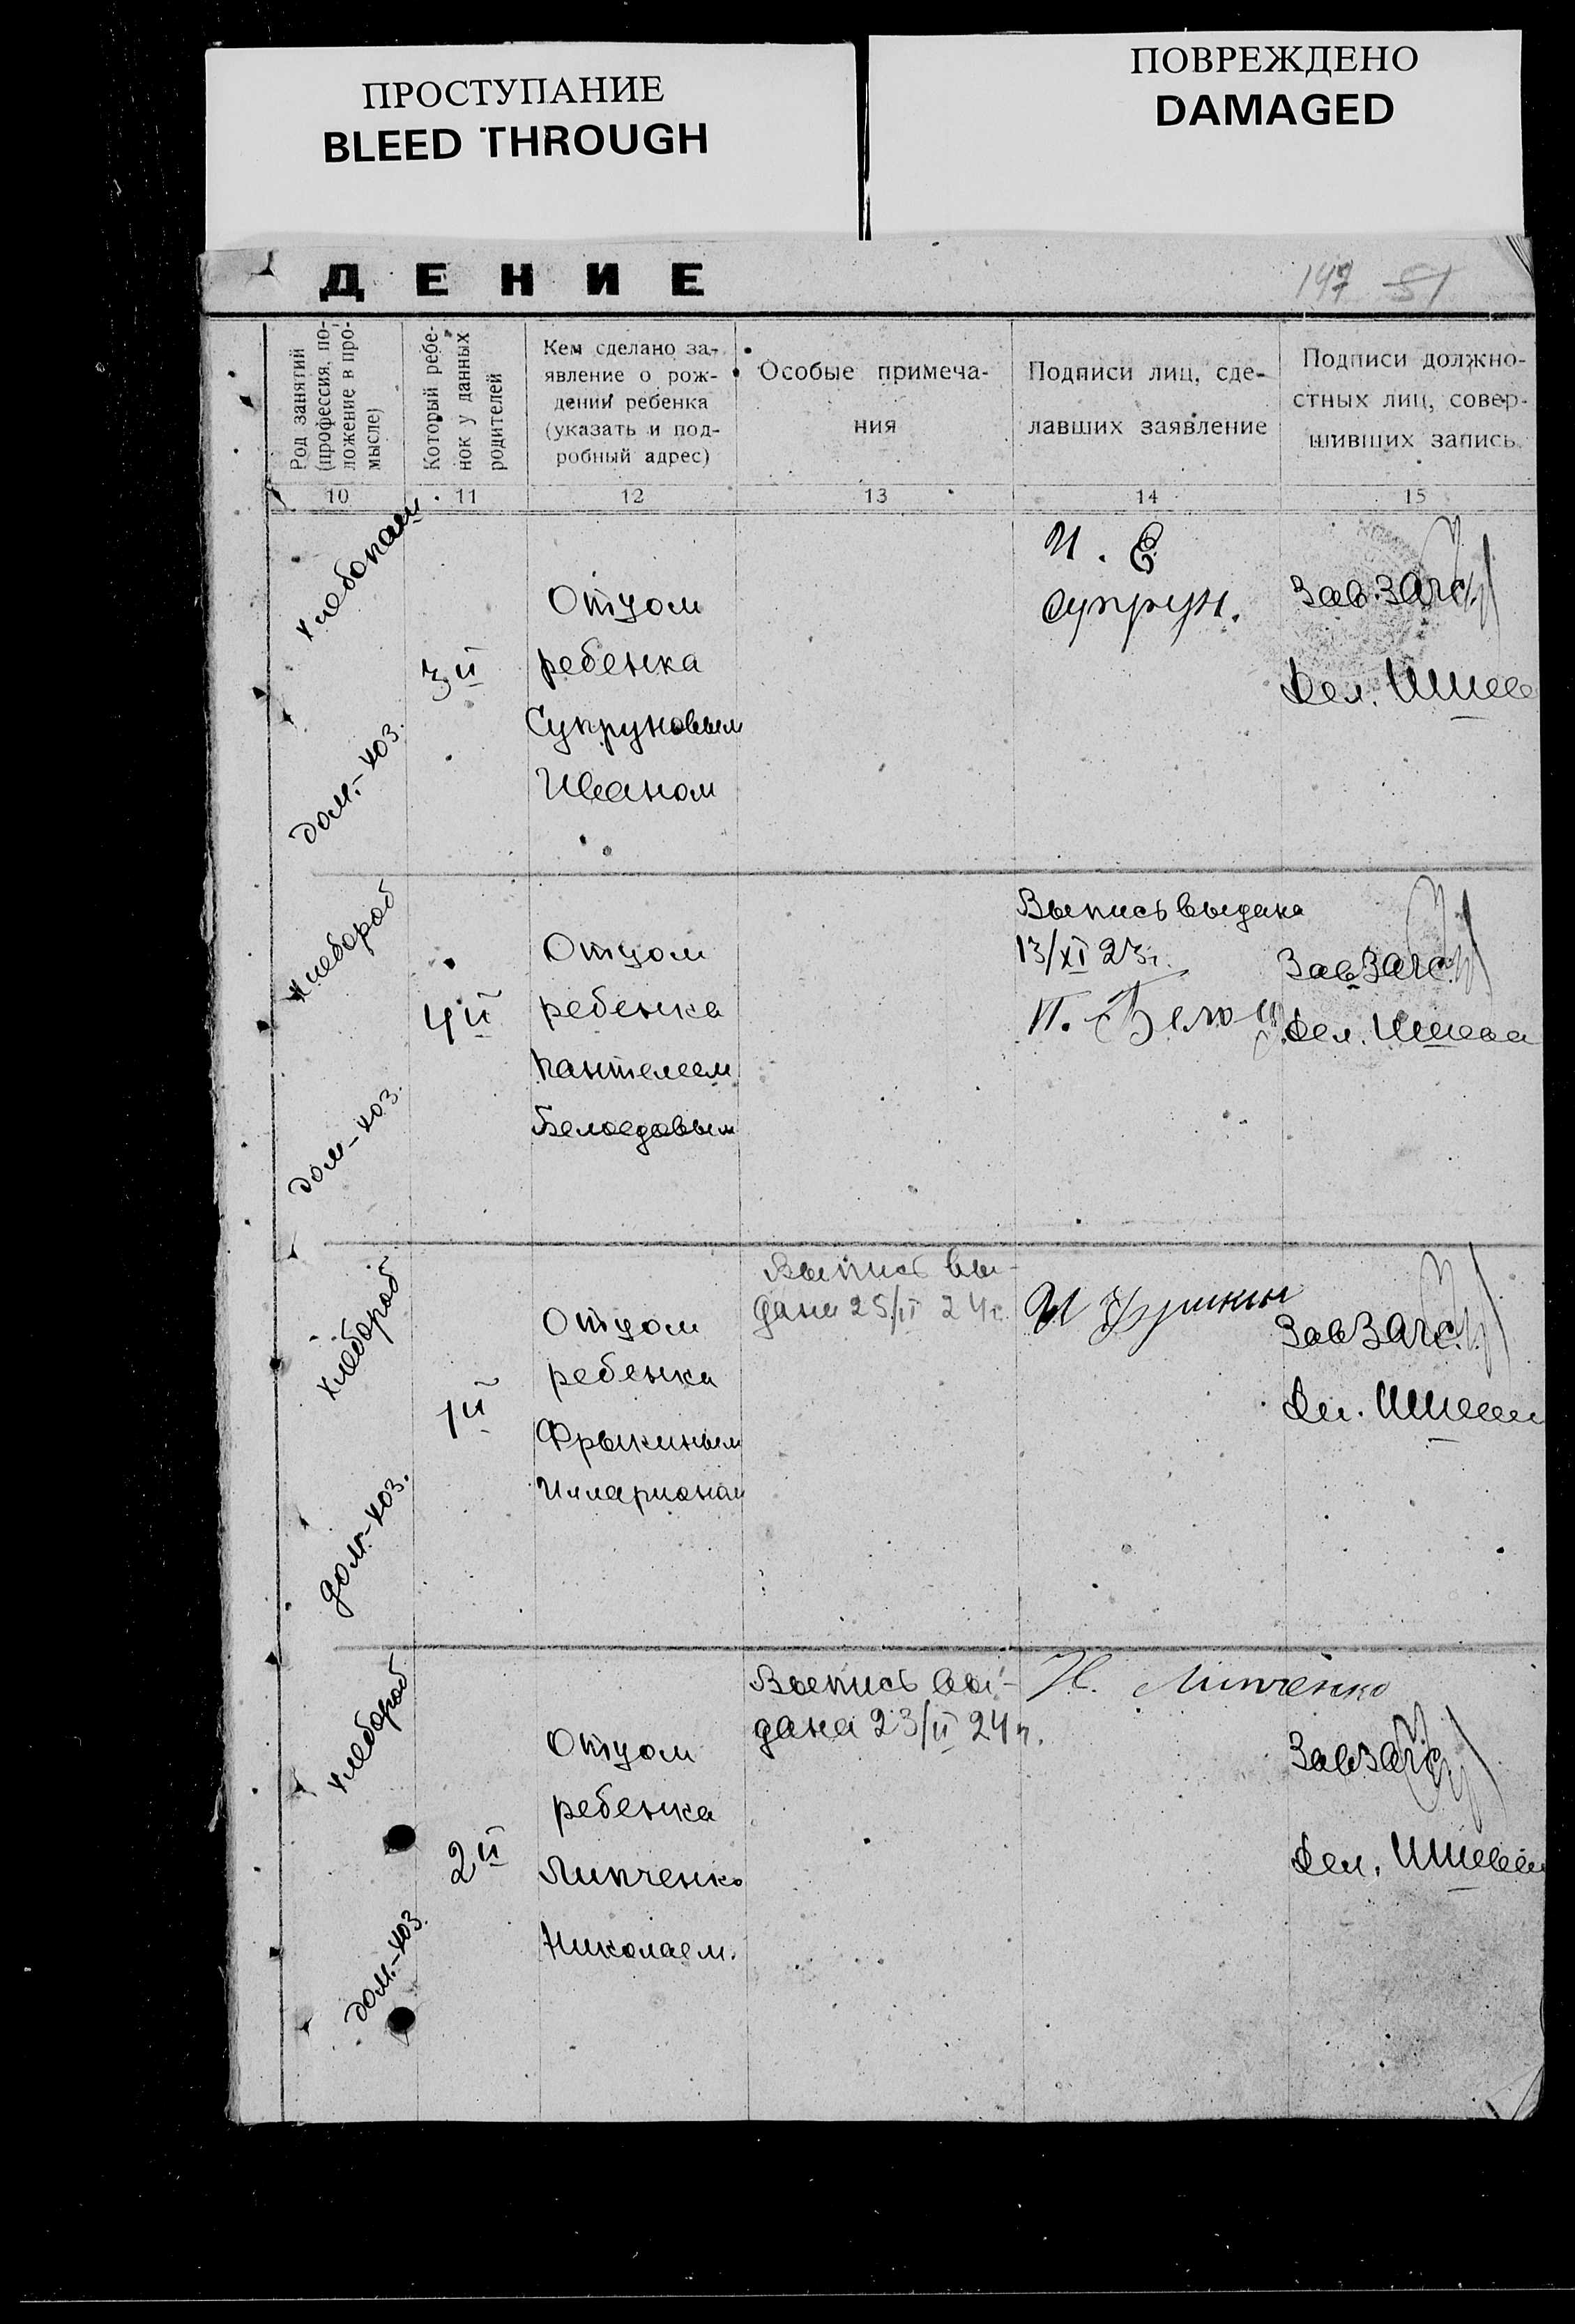 ПРОСТУПАНИЕ
BLEED THROUGH
ПОВРЕЖДЕНО
DAMAGED
ДЕНИЕ
147 51
Род занятий
(профессия, по-
ложение в про-
мысле)
Который ребе-
нок у данных
родителей
Кем сделано за-
явление о рож-
дении ребенка
(указать и под-
робный адрес)
Особые примеча-
ния
Подписи лиц, сде-
лавших заявление
Подписи должно-
стных лиц, совер-
шивших запись.
10 11 12 13 14 15
хлебопаш
дом.-хоз.
3й
Отцом
ребенка
Супруновым
Иваном
И. Е
Супрун.
Зав.Загс
Дел.
хлебороб
дом-хоз.
4й
Отцом
ребенка
Пантелеем
Белоедовым
Выпись выдана
13/XI 23г.
П.
Зав Загс
Дел.
хлебороб
дом.-хоз.
1й
Отцом
ребенка
Фрыкиным
Илларионом
Выпись вы-
дана 25/II 24г.
И
Зав Загс
Дел.
хлебороб
дом.-хоз.
2й
Отцом
ребенка
Липченко
Николаем.
Выпись вы-
дана 23/II 24г.
Н. Липченко
Завзагс
Дел.